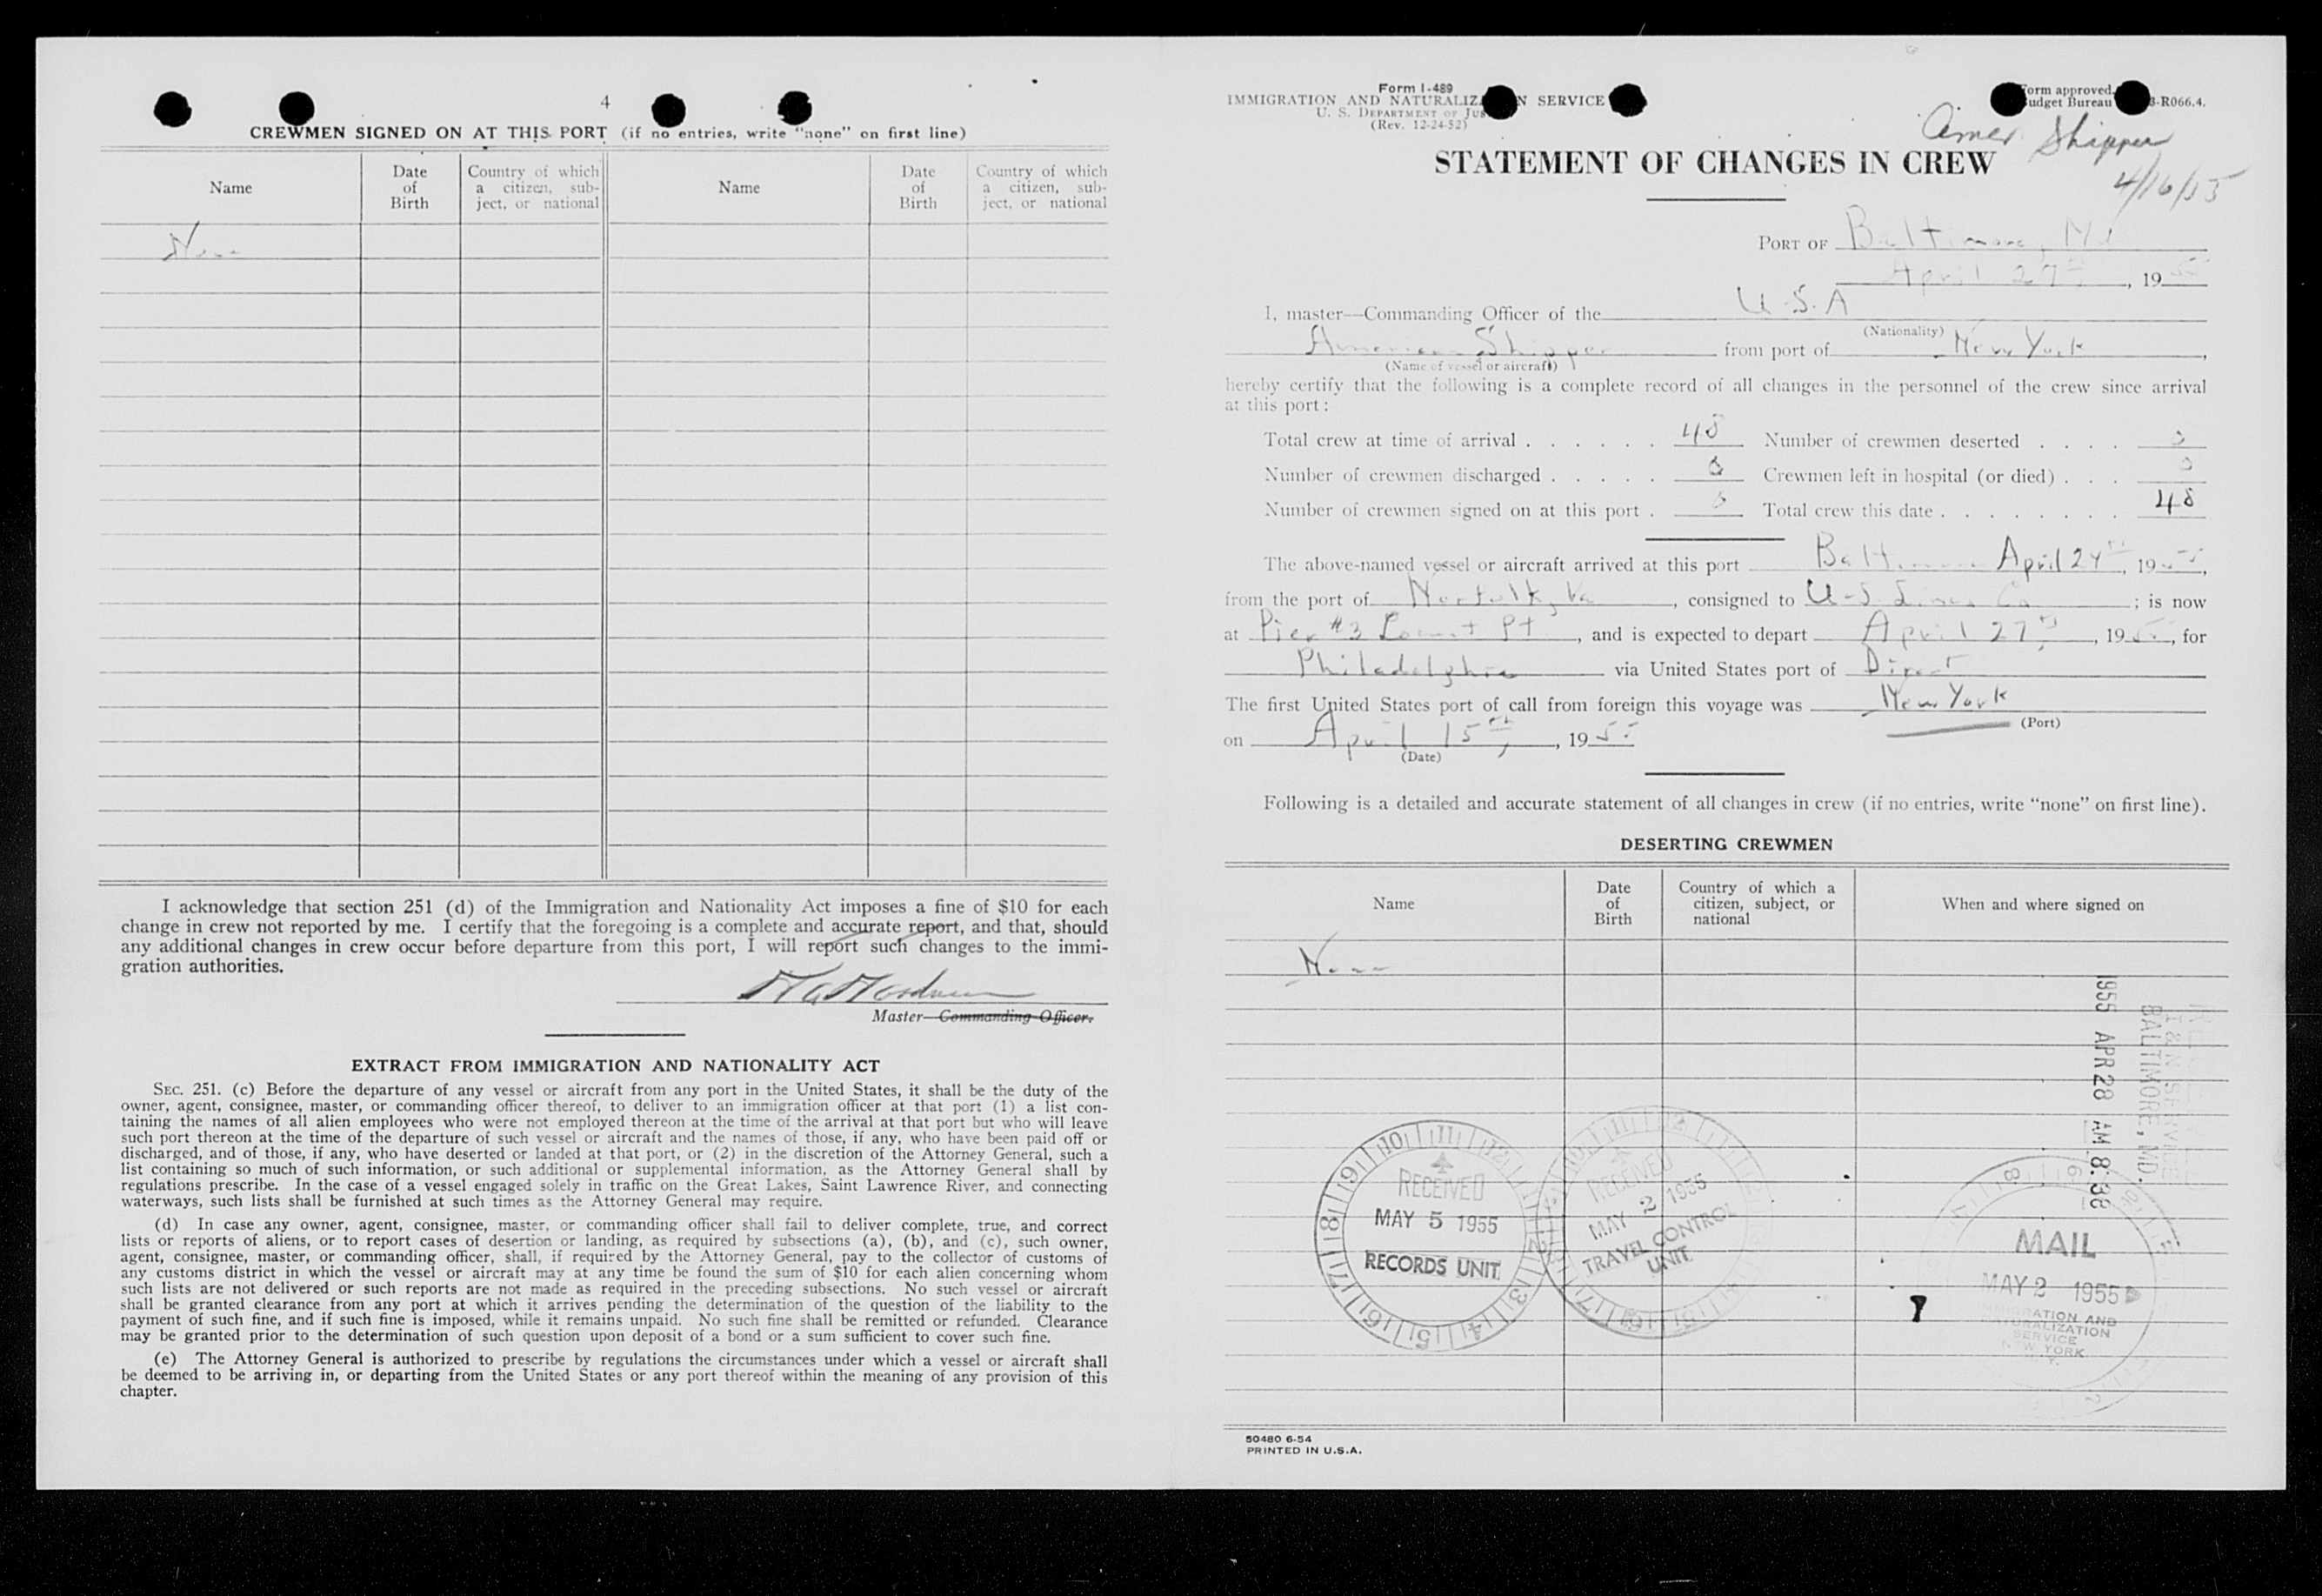 4
CREWMEN SIGNED ON AT THIS PORT (if no entries, write "none" on first line)
Name
Date of Birth
Country of which a citizen, subject, or national
Name
Date of Birth
Country of which a citizen, subject, or national
None
I acknowledge that section 251 (d) of the Immigration and Nationality Act imposes a fine of $10 for each
change in crew not reported by me. I certify that the foregoing is a complete and accurate report, and that, should
any additional changes in crew occur before departure from this port, I will report such changes to the immi-
gration authorities.
Master—Commanding Officer.
EXTRACT FROM IMMIGRATION AND NATIONALITY ACT
SEC. 251. (c) Before the departure of any vessel or aircraft from any port in the United States, it shall be the duty of the
owner, agent, consignee, master, or commanding officer thereof, to deliver to an immigration officer at that port (1) a list con-
taining the names of all alien employees who were not employed thereon at the time of the arrival at that port but who will leave
such port thereon at the time of the departure of such vessel or aircraft and the names of those, if any, who have been paid off or
discharged, and of those, if any, who have deserted or landed at that port, or (2) in the discretion of the Attorney General, such a
list containing so much of such information, or such additional or supplemental information, as the Attorney General shall by
regulations prescribe. In the case of a vessel engaged solely in traffic on the Great Lakes, Saint Lawrence River, and connecting
waterways, such lists shall be furnished at such times as the Attorney General may require.
(d) In case any owner, agent, consignee, master, or commanding officer shall fail to deliver complete, true, and correct
lists or reports of aliens, or to report cases of desertion or landing, as required by subsections (a), (b), and (c), such owner,
agent, consignee, master, or commanding officer, shall, if required by the Attorney General, pay to the collector of customs of
any customs district in which the vessel or aircraft may at any time be found the sum of $10 for each alien concerning whom
such lists are not delivered or such reports are not made as required in the preceding subsections. No such vessel or aircraft
shall be granted clearance from any port at which it arrives pending the determination of the question of the liability to the
payment of such fine, and if such fine is imposed, while it remains unpaid. No such fine shall be remitted or refunded. Clearance
may be granted prior to the determination of such question upon deposit of a bond or a sum sufficient to cover such fine.
(e) The Attorney General is authorized to prescribe by regulations the circumstances under which a vessel or aircraft shall
be deemed to be arriving in, or departing from the United States or any port thereof within the meaning of any provision of this
chapter.
Form I-489
IMMIGRATION AND NATURALIZ N SERVICE
U. S. DEPARTMENT OF JUS
(Rev. 12-24-52)
orm approved.
udget Bureau -R066.4.
Amer Shipper
4/16/55
STATEMENT OF CHANGES IN CREW
PORT OF Baltimore, Md
April 27th, 1955
I, master—Commanding Officer of the U.S.A
(Nationality)
American Shipper from port of New York,
(Name of vessel or aircraft)
hereby certify that the following is a complete record of all changes in the personnel of the crew since arrival
at this port:
Total crew at time of arrival . . . . . . 48 Number of crewmen deserted . . . . 0
Number of crewmen discharged . . . . . 0 Crewmen left in hospital (or died) . . . 0
Number of crewmen signed on at this port . 0 Total crew this date . . . . . . . . 48
The above-named vessel or aircraft arrived at this port Baltimore April 24th, 1955,
from the port of Norfolk, Va, consigned to U-S Lines Co; is now
at Pier #3 Locust Pt, and is expected to depart April 27th, 1955, for
Philadelphia via United States port of Direct
The first United States port of call from foreign this voyage was New York
(Port)
on April 15th, 1955
(Date)
Following is a detailed and accurate statement of all changes in crew (if no entries, write "none" on first line).
DESERTING CREWMEN
Name
Date of Birth
Country of which a citizen, subject, or national
When and where signed on
None
I & N SERVICE
BALTIMORE, MD.
1955 APR 28 AM 8:36
RECEIVED
MAY 5 1955
RECORDS UNIT
RECEIVED
MAY 2 1955
TRAVEL CONTROL
UNIT
MAIL
MAY 2 1955
IMMIGRATION AND
NATURALIZATION
SERVICE
NEW YORK
50480 6-54
PRINTED IN U.S.A.